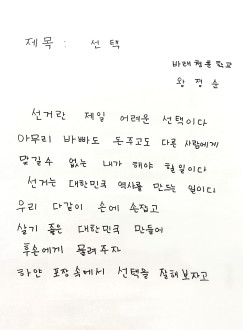 제목 : 선택
바래청춘학교
왕정순
선거란 제일 어려운 선택이다
아무리 바빠도 돈주고도 다른 사람에게
맡길수 없는 내가 해야 할일이다
선거는 대한민국 역사를 만드는 일이다
우리 다같이 손에 손잡고
살기 좋은 대한민국 만들어
후손에게 물려주자
하얀 포장속에서 선택을 잘해보자고